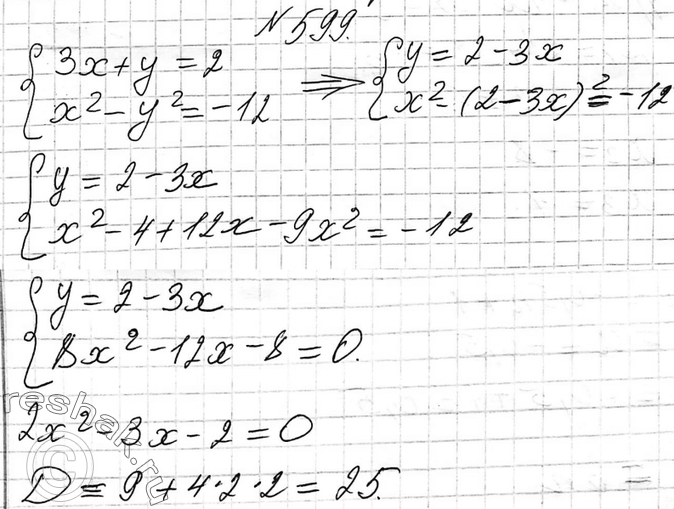 №599.
{3x+y=2 ⇒ {y=2-3x
{x²-y²=-12 {x²-(2-3x)²=-12
{y=2-3x
{x²-4+12x-9x²=-12
{y=2-3x
{8x²-12x-8=0.
2x²-3x-2=0
D=9+4·2·2=25.
reshak.ru